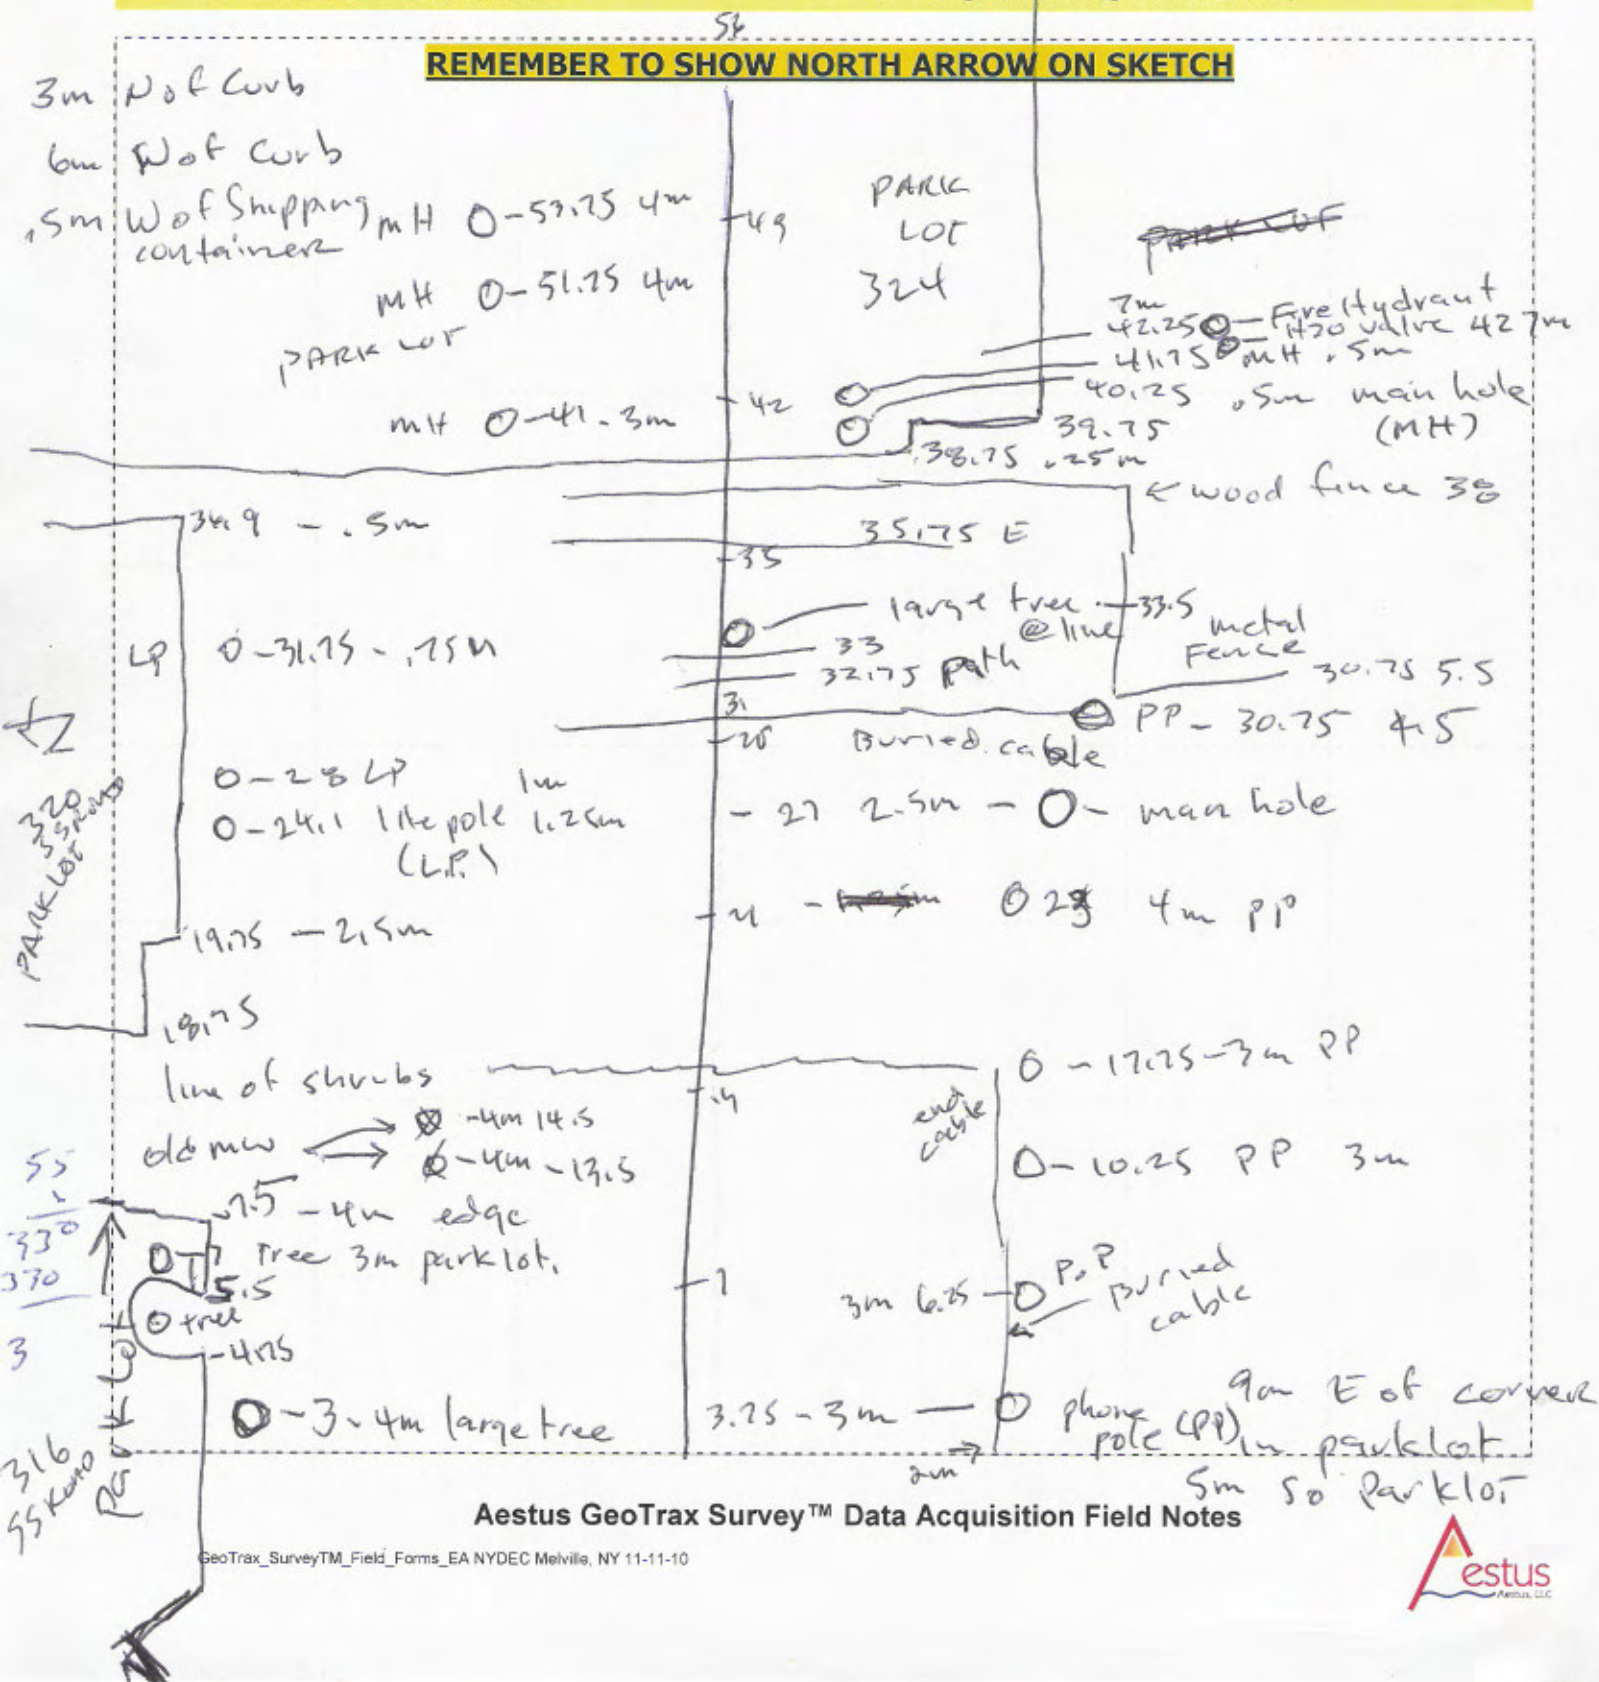 56
REMEMBER TO SHOW NORTH ARROW ON SKETCH
3m N of Curb
6m W of Curb
.5m W of Shipping
container
MH O-53.75 4m
49
PARK
LOT
324
PARK LOT
MH O-51.75 4m
PARK LOT
7m
42.25 O- Fire Hydrant
H20 valve 42 7m
41.75 MH .5m
40.25 .5m man hole
(MH)
MH O-41. 3m
42
39.75
38.75 .25m
← wood fence 38
34.9 - .5m
35.75 E
35
large tree
@line
33.5
metal
Fence
33
32.75 path
30.75 5.5
LP O-31.75 - .75m
31
28
PP - 30.75 4.5
Buried cable
N
320
PARK LOT
O-28 LP 1m
O-24.1 lite pole 1.25m
(L.P.)
- 27 2.5m - O- man hole
21
O 23 4m PP
19.75 - 2.5m
18.75
O - 17.75-3m PP
line of shrubs
14
end
cable
old mw
-4m 14.5
-4m - 13.5
O- 10.25 PP 3m
55
330
330
3
7.5 - 4m edge
Tree 3m park lot.
5.5
O tree
4.75
7
3m 6.25 - O P.P
Buried
cable
O - 3 - 4m large tree
3.25 - 3m - O phone
pole (PP)
9m E of corner
in parklot
5m so Parklot
2m →
316
Park Lot
Aestus GeoTrax Survey™ Data Acquisition Field Notes
GeoTrax_SurveyTM_Field_Forms_EA NYDEC Melville, NY 11-11-10
Aestus
Aestus, LLC